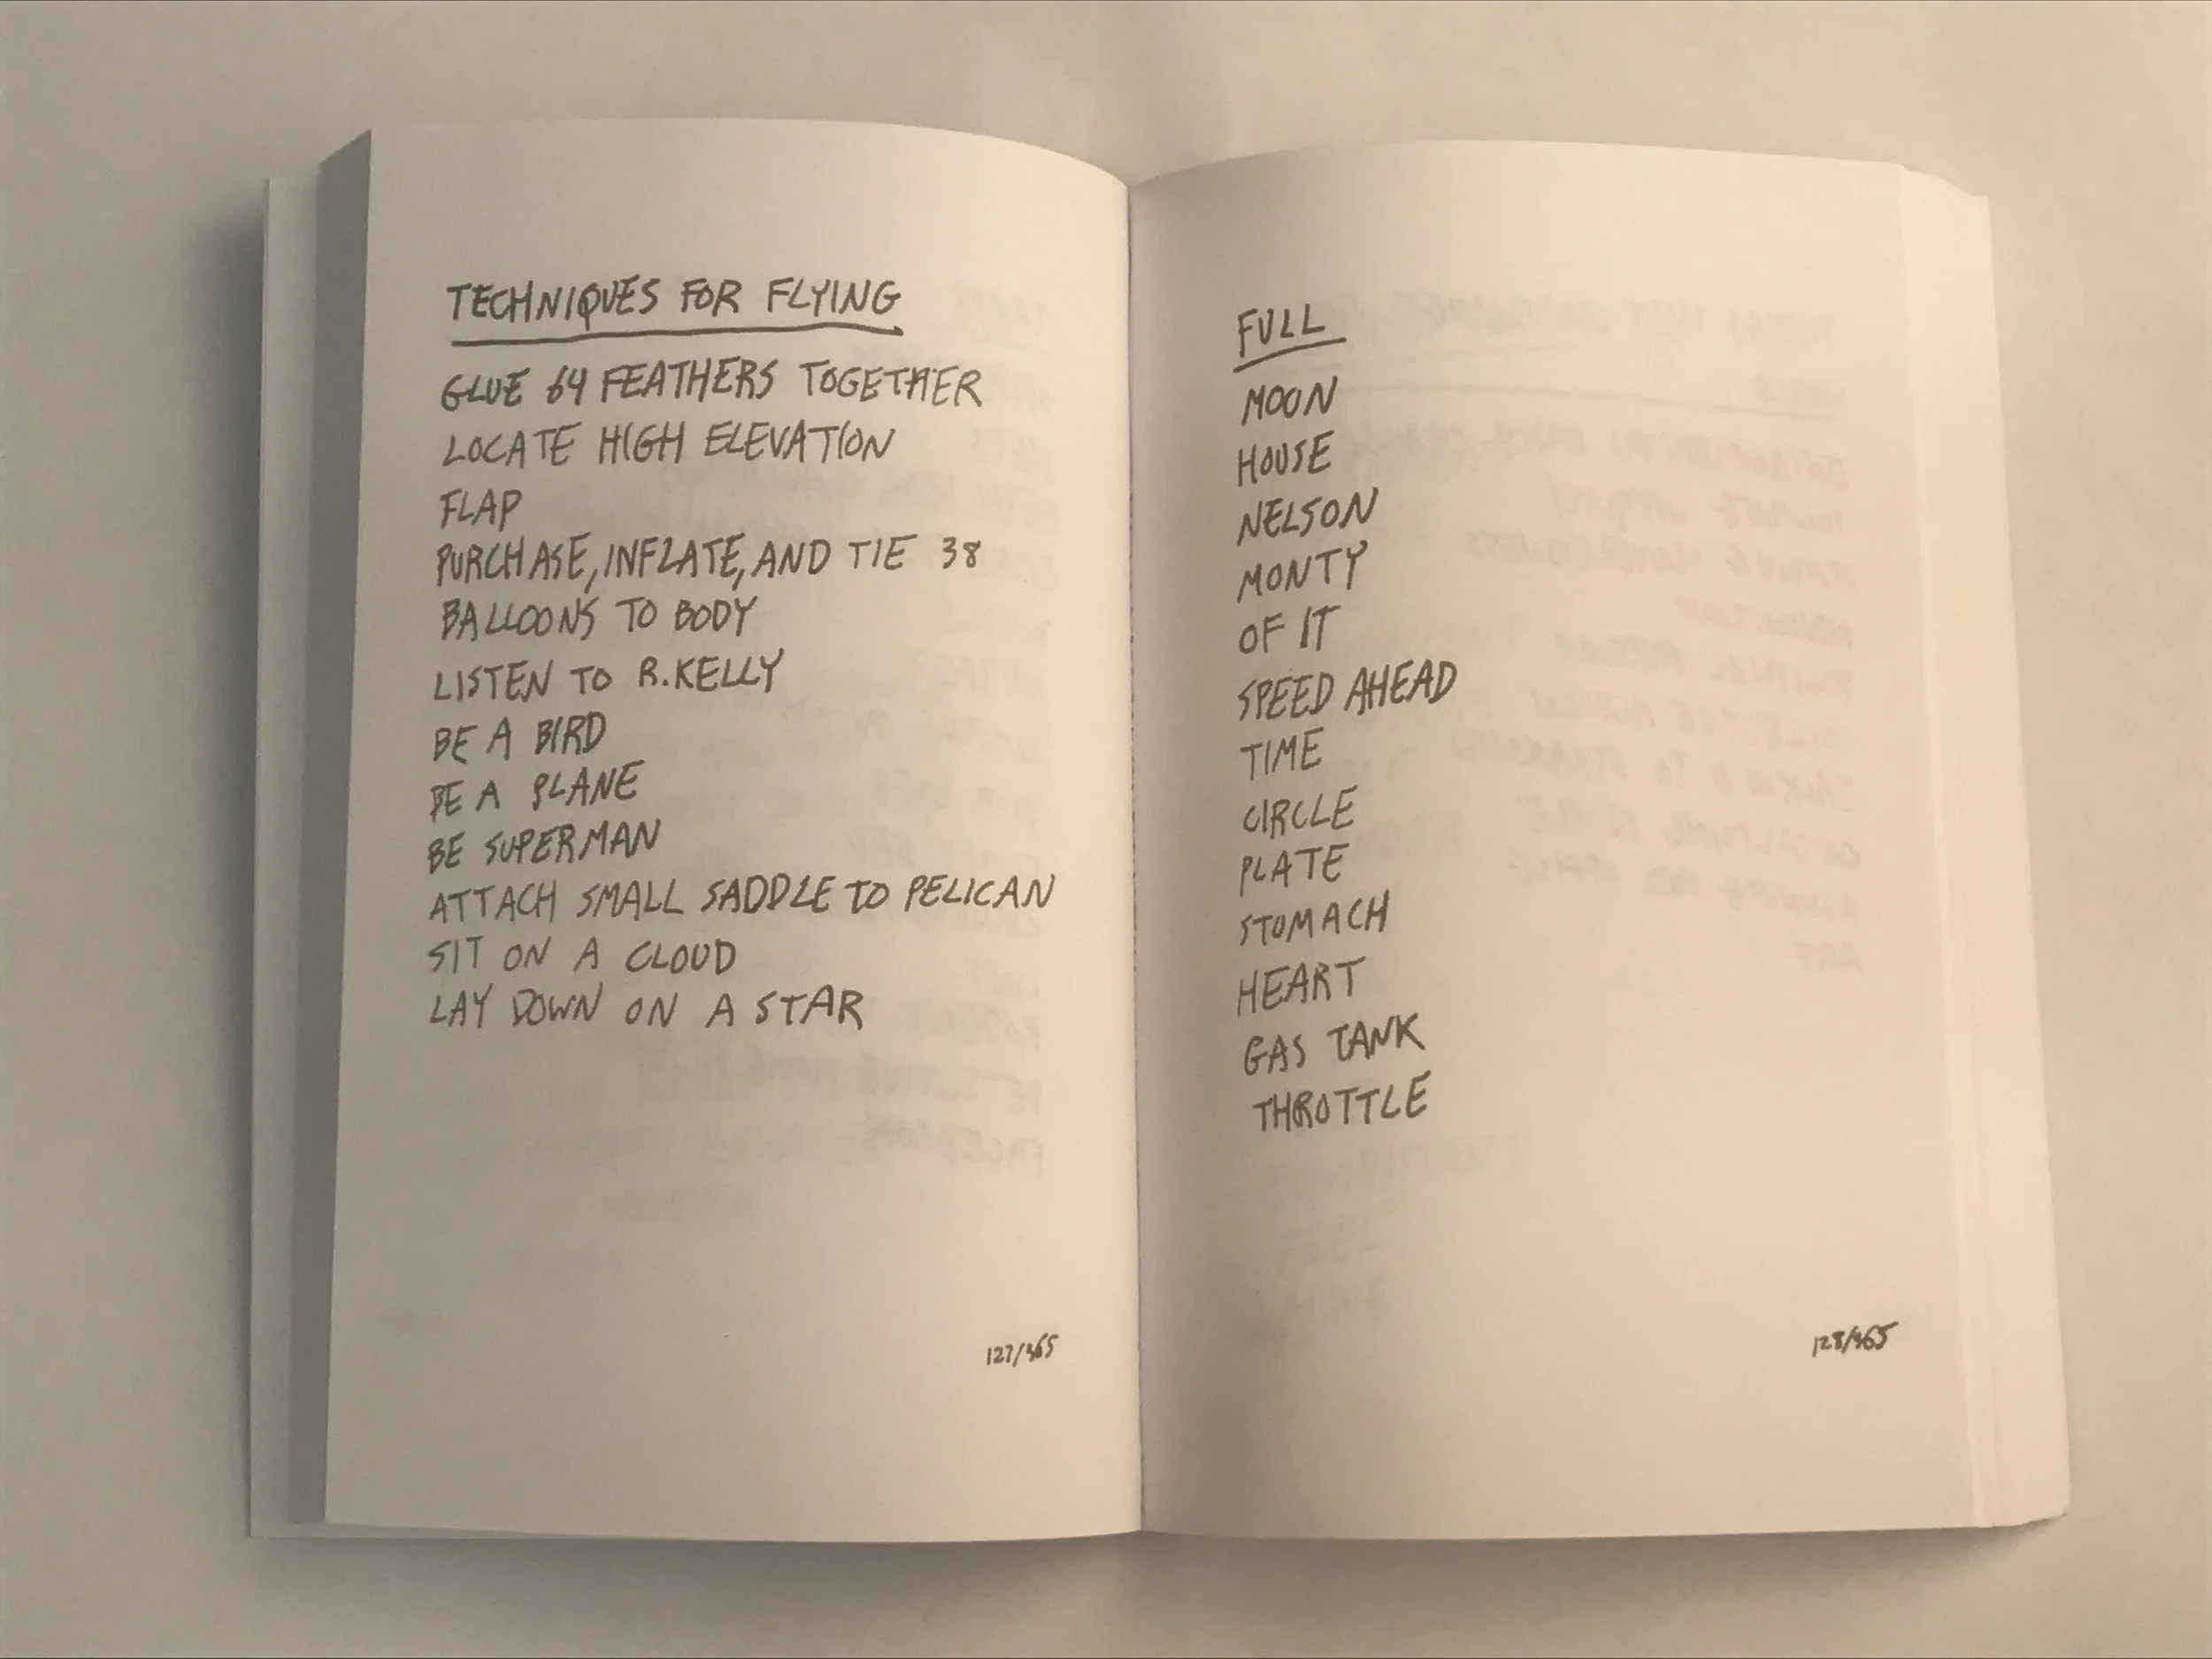 TECHNIQUES FOR FLYING
GLUE 64 FEATHERS TOGETHER
LOCATE HIGH ELEVATION
FLAP
PURCHASE, INFLATE, AND TIE 38
BALLOONS TO BODY
LISTEN TO R. KELLY
BE A BIRD
BE A PLANE
BE SUPERMAN
ATTACH SMALL SADDLE TO PELICAN
SIT ON A CLOUD
LAY DOWN ON A STAR
127/365
FULL
MOON
HOUSE
NELSON
MONTY
OF IT
SPEED AHEAD
TIME
CIRCLE
PLATE
STOMACH
HEART
GAS TANK
THROTTLE
128/365